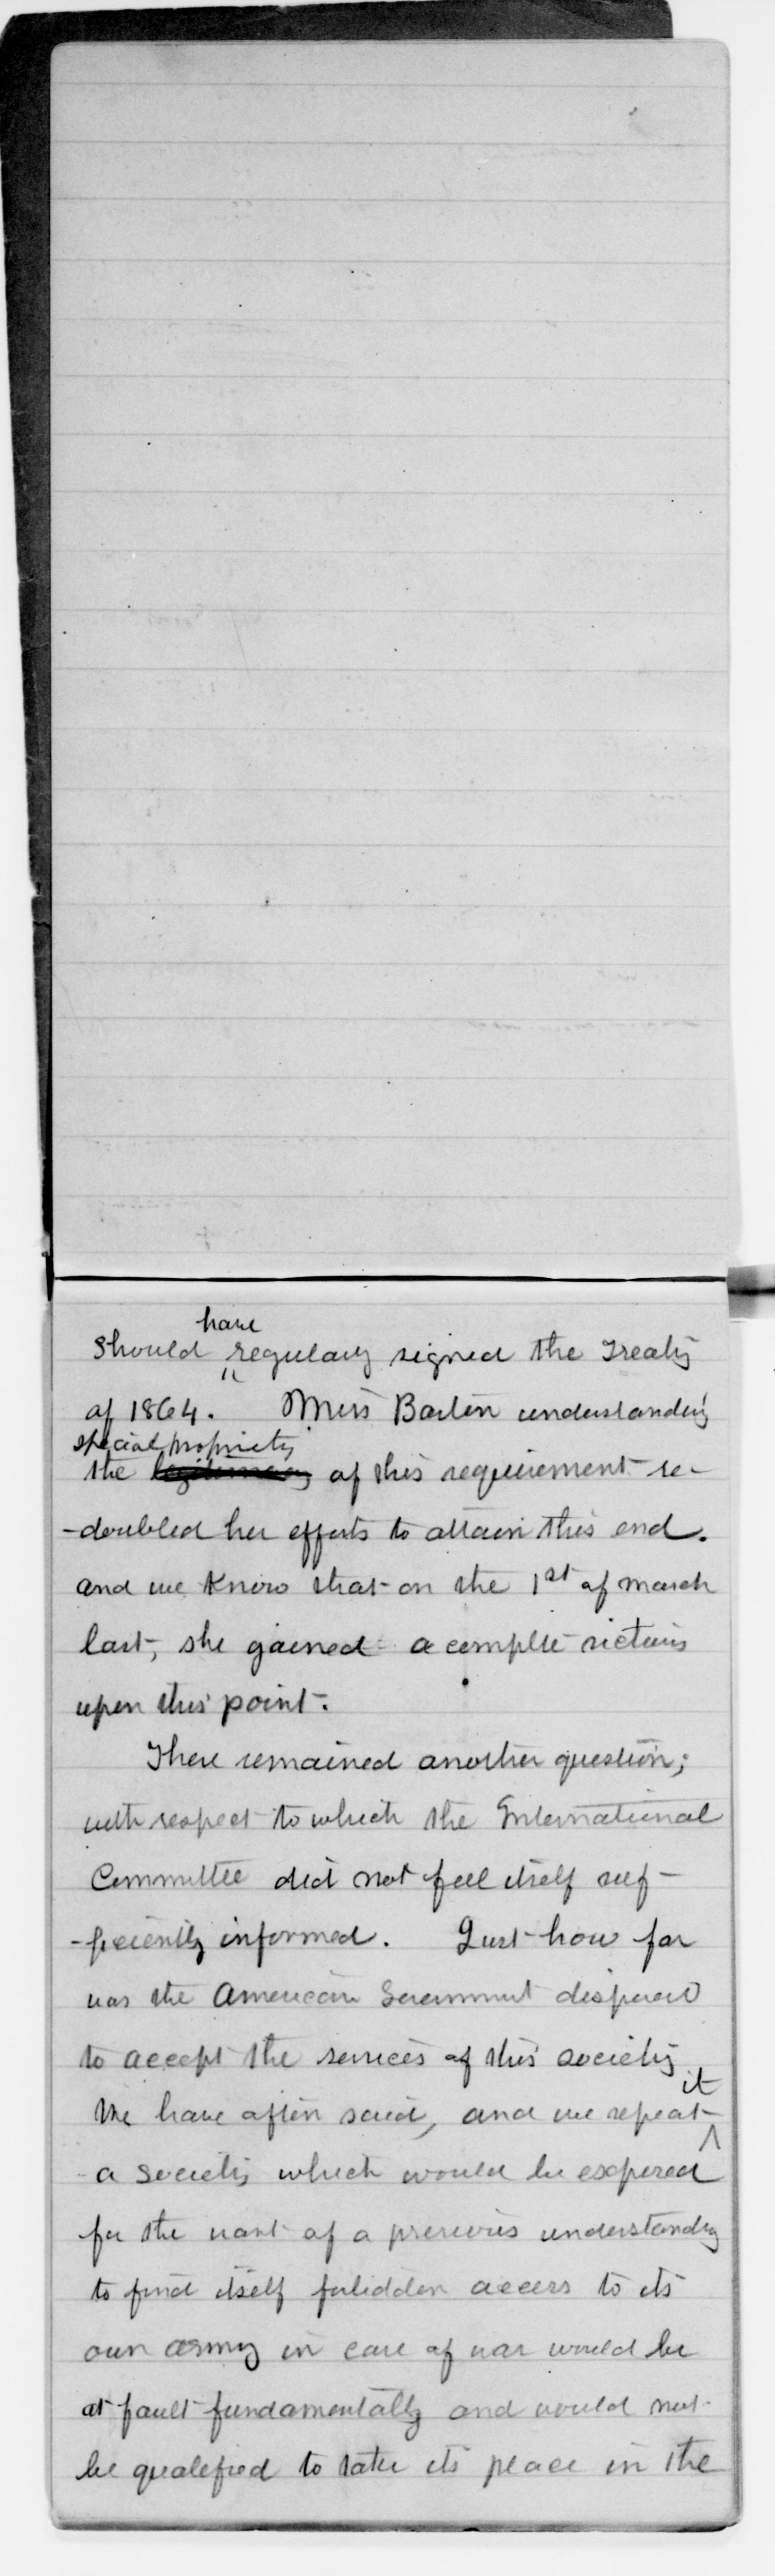 have
should regularly signed the Treaty
of 1864. Miss Barton understanding
special propriety
the legitimacy of this requirement re-
-doubled her efforts to attain this end.
and we know that on the 1st of march
last, she gained a complete victory
upon this point.
There remained another question;
with respect to which the International
Committee did not feel itself suf-
-ficiently informed. Just how far
was the American Government disposed
to accept the services of this society
it
We have often said, and we repeat
a society which would be exposed
for the want of a previous understanding
to find itself forbidden access to its
own army in case of war would be
at fault fundamentally and would not
be qualified to take its place in the